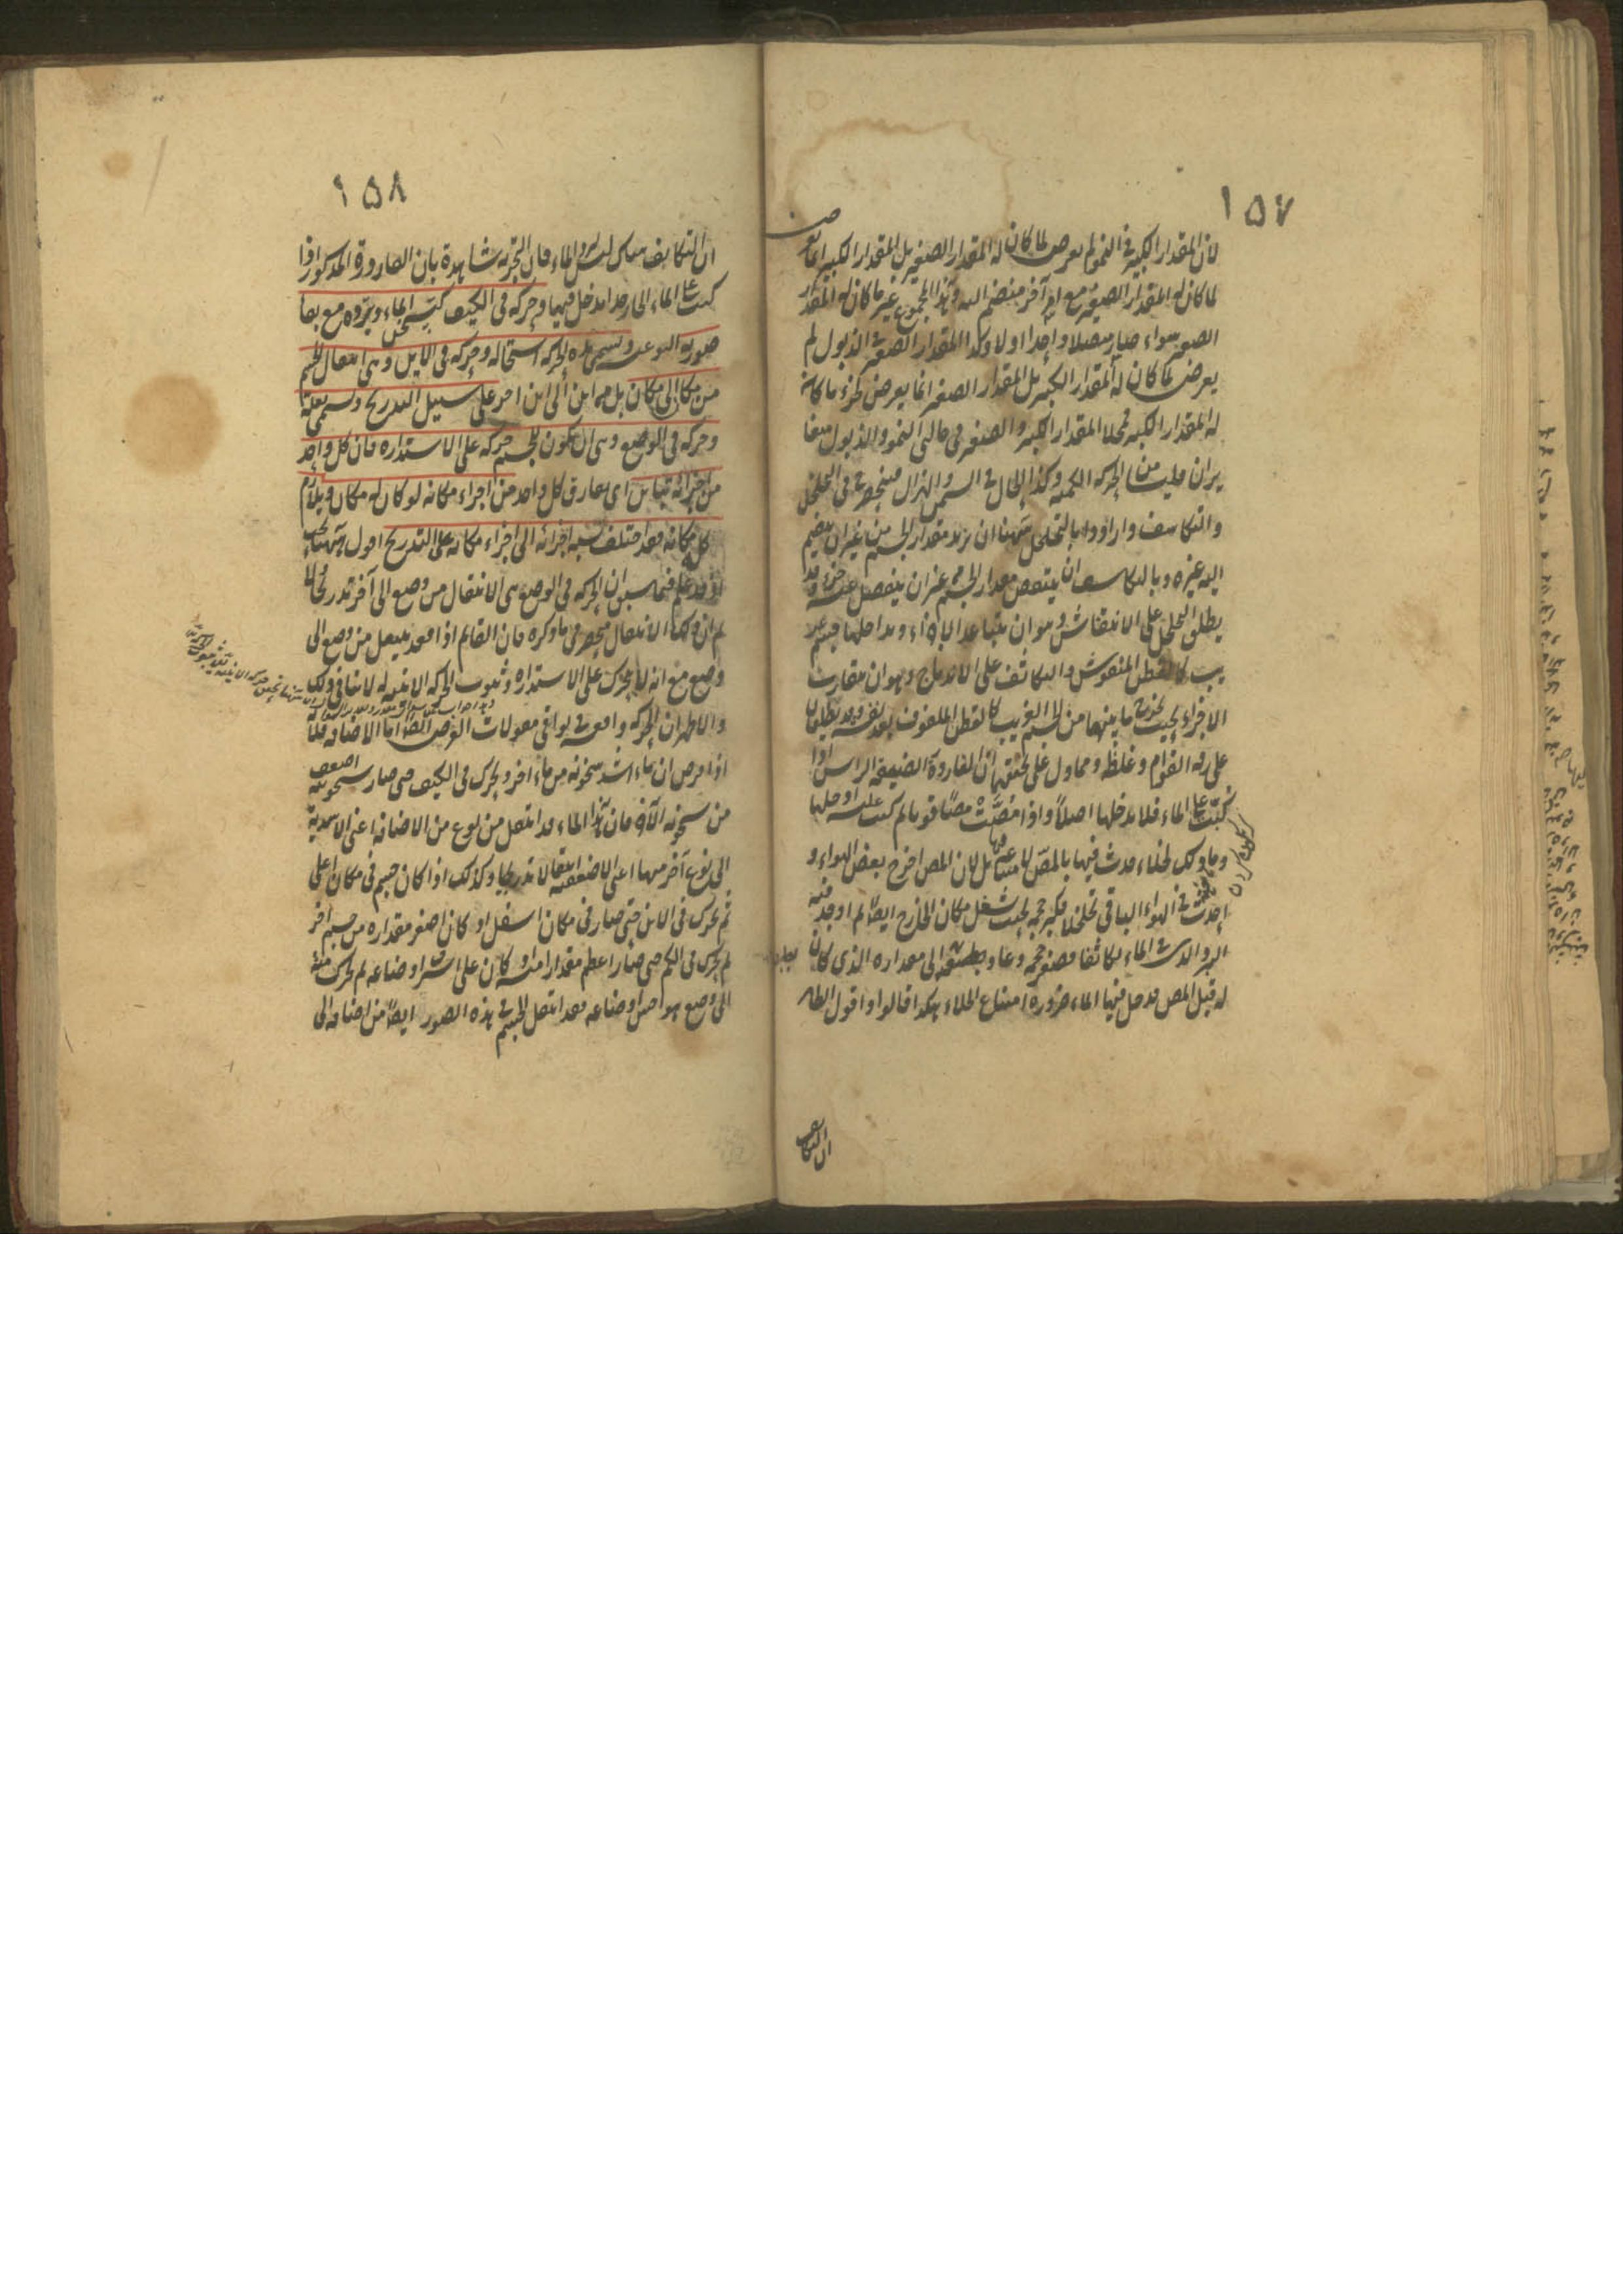 ١٥٧
لان المقدار الكبير فى النمو لم يعرض لما كان له المقدار الصغير بل المقدار الكبير انما يعرض
لما كان له المقدار الصغير مع امر آخر منضم اليه وهذا المجموع غير ما كان له المقدار
الصغير سواء صار متصلا واحدا اولا وكذا المقدار الصغير فى الذبول لم
يعرض لما كان له المقدار الكبير بل المقدار الصغير انما يعرض لجزء ما كان
له المقدار الكبير فمحل المقدار الكبير والصغير فى حالتى النمو والذبول متغا
يران فليسا من الحركة الكمية وكذا الحال فى السمن والهزال فينحصر فى التخلخل
والتكاثف وارادوا بالتخلخل ههنا ان يزيد مقدار الجسم من غير ان ينضم
اليه غيره وبالتكاثف ان ينتقص مقدار الجسم من غير ان ينفصل عنه جزء وقد
يطلق التخلخل على الانتفاش وهو ان يتباعد الاجزاء ويداخلها جسم غر
يب كالقطن المنفوش والتكاثف على الاندماج وهو ان يتقارب
الاجزاء بحيث يخرج ما بينها من الجسم الغريب كالقطن الملفوف بعد نفشه وقد يطلقان
على رقة القوام وغلظه ومما دل على تحققهما ان القارورة الضيقة الراس اذا
كبت على الماء فلا يدخلها اصلا واذا مصت مصا قويا ثم كبت عليه دخلها
وما ذلك لخلاء حدث فيها بالمص لامتناعه بل لان المص اخرج بعض الهواء و
احدث فى الهواء الباقى تخلخلا فكبر حجمه بحيث شغل مكان الخارج ايضا ثم اوجد فيه
البرد الذى فى الماء تكاثفا فصغر حجمه وعاد بطبعه الى مقداره الذى كان
له قبل المص فدخل فيها الماء ضرورة امتناع الخلاء هكذا قالوا واقول الظاهر
ان التكاثف
١٥٨
ان التكاثف ههنا ليس لبرد الماء فان التجربة شاهدة بان القارورة المذكورة اذا
كبت على الماء الحار جدا يدخل فيها وحركة فى الكيف كتسخن الماء وتبرده مع بقاء
صورته النوعية وتسمى هذه الحركة استحالة وحركة فى الاين وهى انتقال الجسم
من مكان الى مكان بل من اين الى اين آخر على سبيل التدريج وتسمى نقلة
وحركة فى الوضع وهى ان يكون للجسم حركة على الاستدارة فان كل واحد
من اجزائه يباين اى يفارق كل واحد من اجزاء مكانه لو كان له مكان ويلازم
كله مكانه فقد اختلف نسبة اجزائه الى اجزاء مكانه على التدريج اقول ههنا بحث
اذ قد علم فيما سبق ان الحركة فى الوضع هى الانتقال من وضع الى آخر تدريجا ولا
ثم ان ذلك الانتقال منحصر فى ما ذكره فان القائم اذا قعد ينتقل من وضع الى
وضع مع انه لا يتحرك على الاستدارة وثبوت الحركة الاينية له لا ينافى ذلك
والاظهر ان الحركة واقعة فى بواقى مقولات العرض ايضا اما الاضافة فلانا
اذا فرض ان ماء اشد سخونة من ماء آخر وتحرك فى الكيف حتى صار سخونته اضعف
من سخونة الآخر فان هذا الماء قد انتقل من نوع من الاضافة اعنى الاشدية
الى نوع آخر منها اعنى الاضعفية انتقالا تدريجيا وكذلك اذا كان جسم فى مكان اعلى
ثم تحرك فى الاين حتى صار فى مكان اسفل او كان اصغر مقدارا من جسم آخر
ثم تحرك فى الكم حتى صار اعظم مقدارا منه او كان على اشرف اوضاعه ثم تحرك منه
الى وضع هو اخس اوضاعه فقد انتقل الجسم فى هذه الصور ايضا من اضافة الى